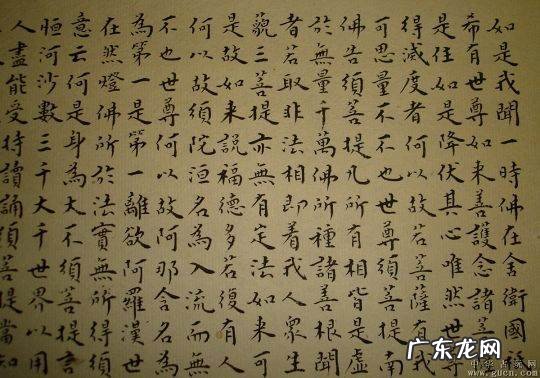 如是我聞一時佛在舍衛國
希有世尊如来善護念諸菩
是住如是降伏其心唯然世
得滅度者何以故若菩薩有我
可思量不不也世尊須菩提南
佛告須菩提凡所有相皆是虛
於無量千萬佛所種諸善根聞
者若取非法相即着我人眾生
藐三菩提亦無有定法如来可
是故如来說福德多若復有人
何以故須陀洹名為入流而無
不也世尊何以故阿那含名為
為第一是第一離欲阿羅漢世
在然燈佛所於法實無所得須
意云何是身為大不須菩提言
恒河沙數三千大千世界以用
人盡能受持讀誦須菩提當知
广东龙网
www.gucn.com